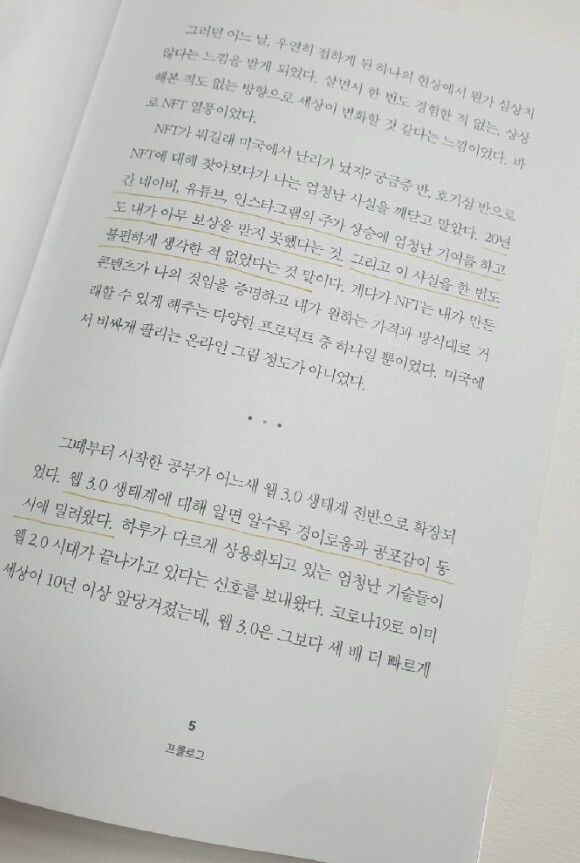 그러던 어느 날, 우연히 접하게 된 하나의 현상에서 뭔가 심상치
않다는 느낌을 받게 되었다. 살면서 한 번도 경험한 적 없는, 상상
해본 적도 없는 방향으로 세상이 변화할 것 같다는 느낌이었다. 바
로 NFT 열풍이었다.
NFT가 뭐길래 미국에서 난리가 났지? 궁금증 반, 호기심 반으로
NFT에 대해 찾아보다가 나는 엄청난 사실을 깨닫고 말았다. 20년
간 네이버, 유튜브, 인스타그램의 주가 상승에 엄청난 기여를 하고
도 내가 아무 보상을 받지 못했다는 것. 그리고 이 사실을 한 번도
불편하게 생각한 적 없었다는 것 말이다. 게다가 NFT는 내가 만든
콘텐츠가 나의 것임을 증명하고 내가 원하는 가격과 방식대로 거
래할 수 있게 해주는 다양한 프로덕트 중 하나일 뿐이었다. 미국에
서 비싸게 팔리는 온라인 그림 정도가 아니었다.
• • •
그때부터 시작한 공부가 어느새 웹 3.0 생태계 전반으로 확장되
었다. 웹 3.0 생태계에 대해 알면 알수록 경이로움과 공포감이 동
시에 밀려왔다. 하루가 다르게 상용화되고 있는 엄청난 기술들이
웹 2.0 시대가 끝나가고 있다는 신호를 보내왔다. 코로나19로 이미
세상이 10년 이상 앞당겨졌는데, 웹 3.0은 그보다 세 배 더 빠르게
5
프롤로그